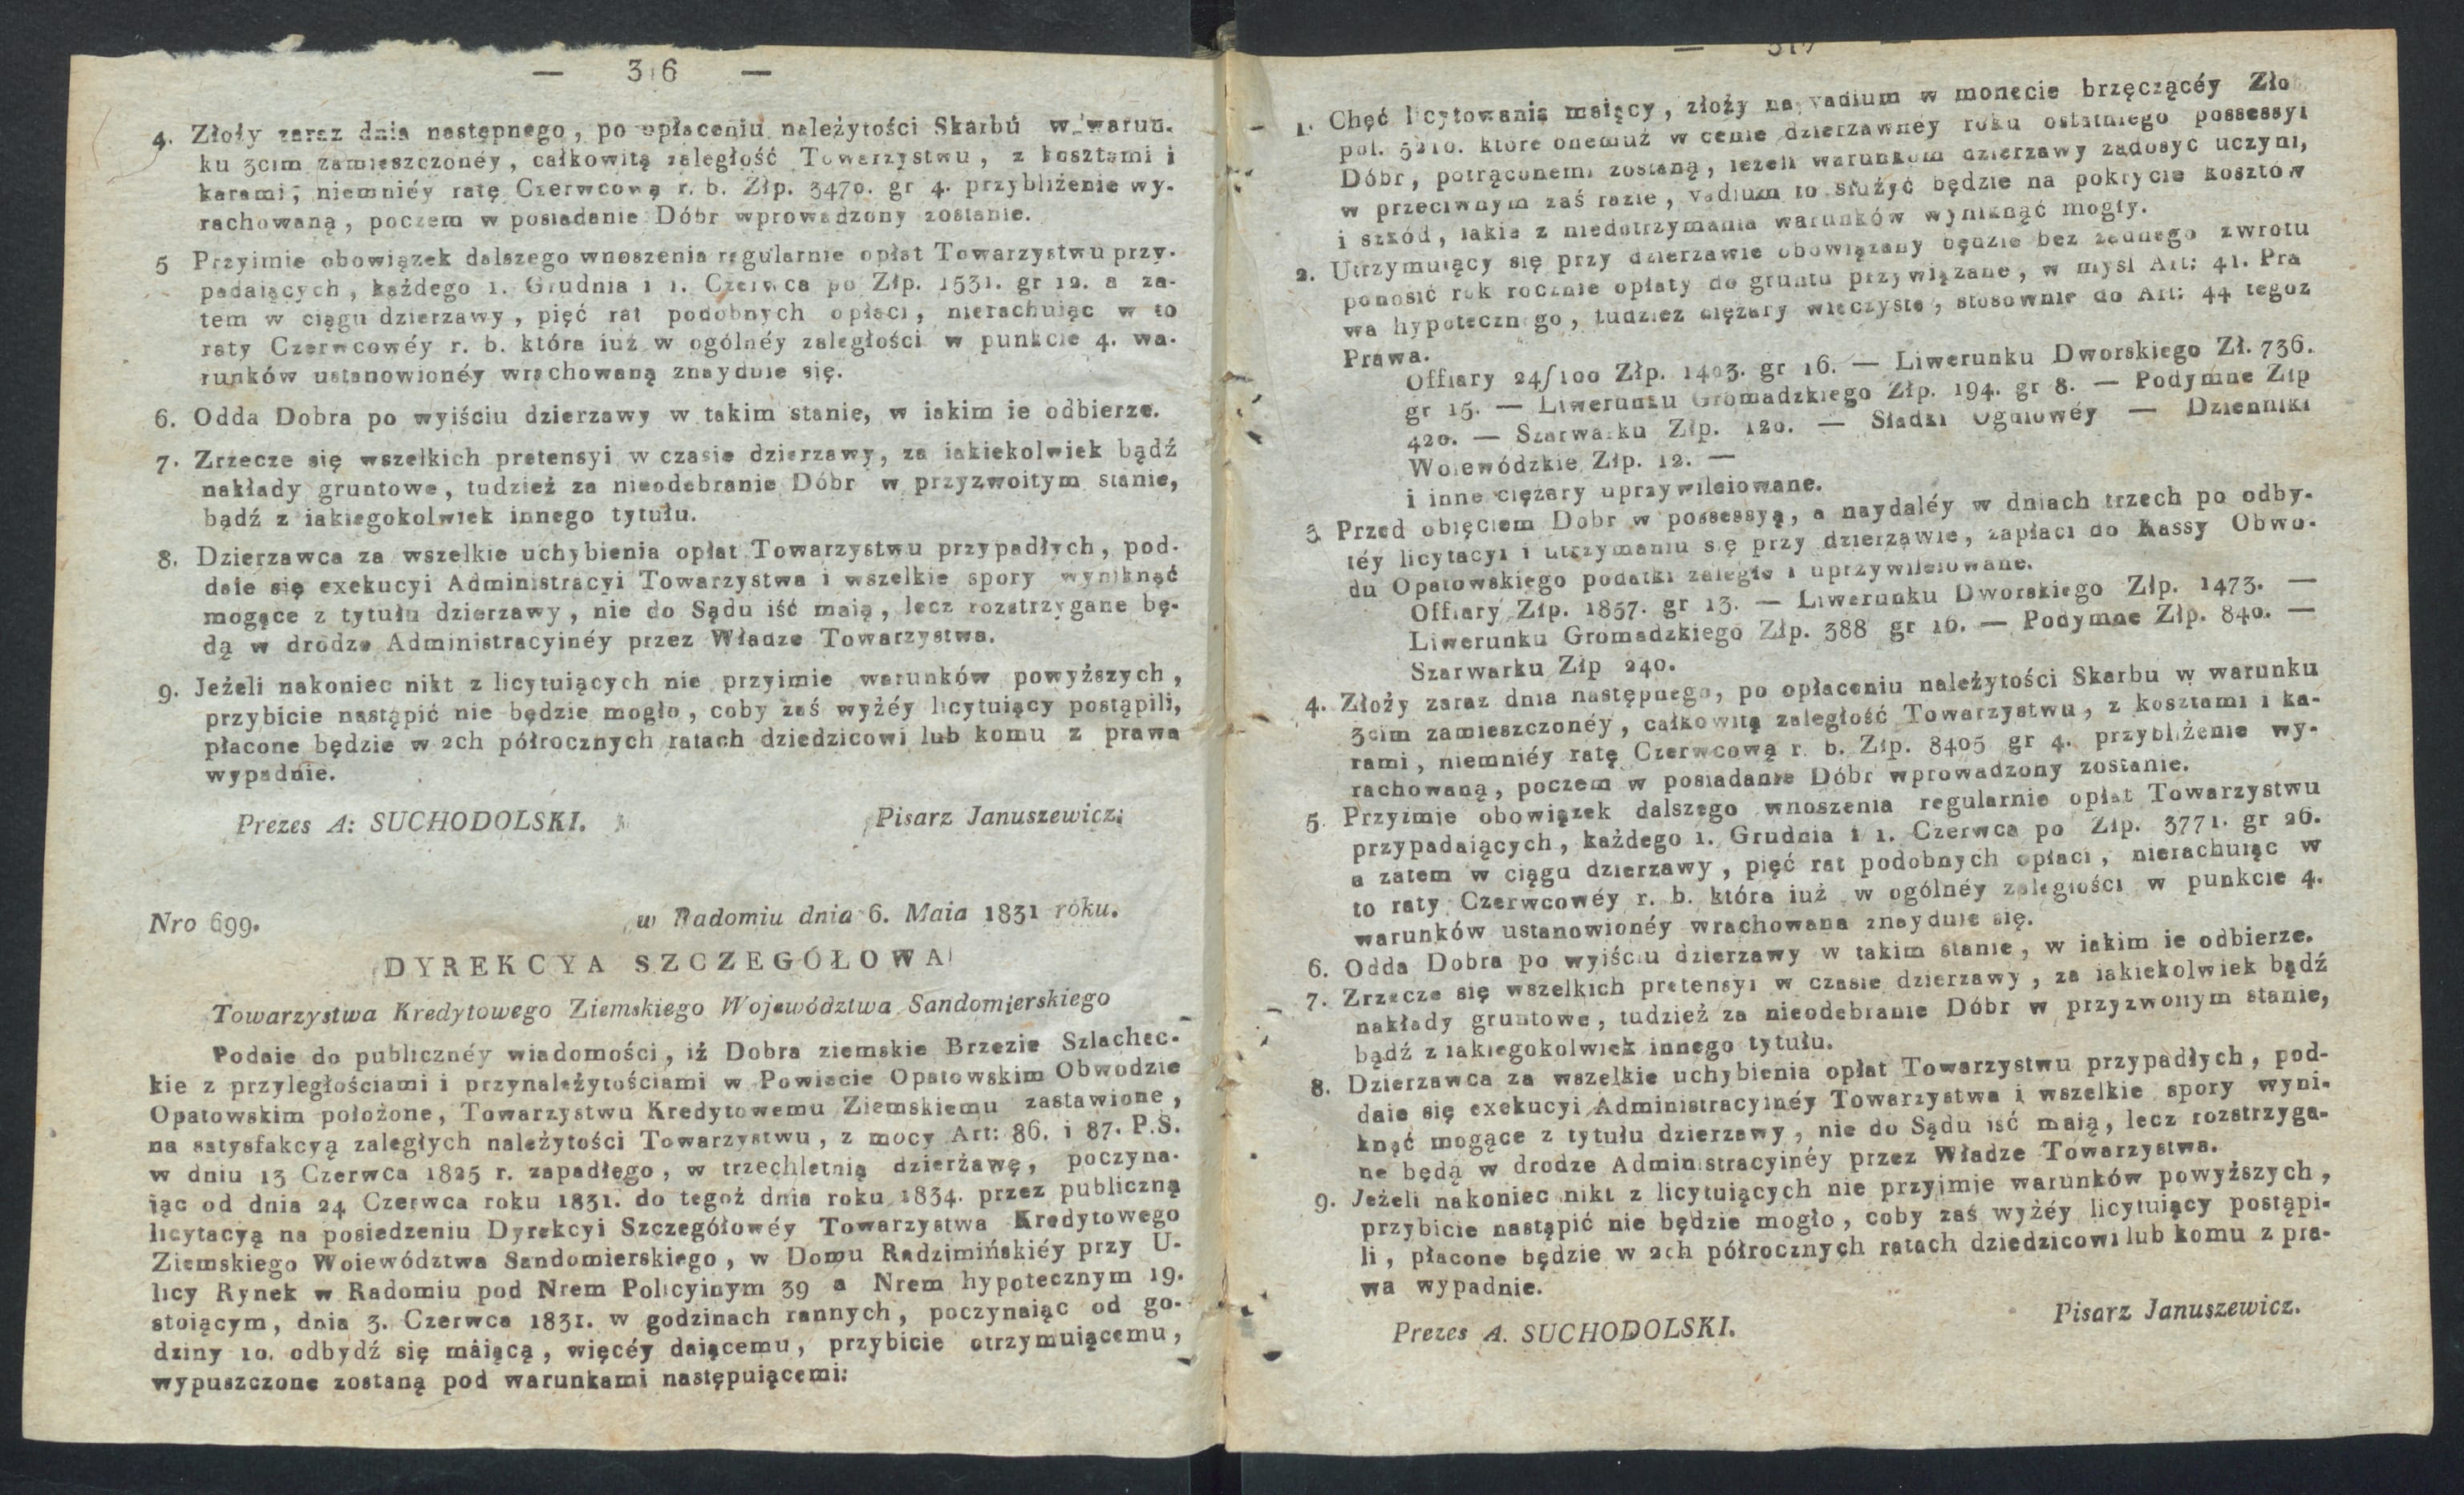 — 316 —
4. Złoży zaraz dnia następnego, po opłaceniu należytości Skarbu w warun-
ku 3cim zamieszczonéy, całkowitą zaległość Towarzystwu, z kosztami i
karami, niemniéy ratę Czerwcową r. b. Złp. 3470. gr 4. przybliżenie wy-
rachowaną, poczem w posiadanie Dóbr wprowadzony zostanie.
5 Przyimie obowiązek dalszego wnoszenia regularnie opłat Towarzystwu przy-
padaiących, każdego 1. Grudnia i 1. Czerwca po Złp. 1531. gr 12. a za-
tem w ciągu dzierzawy, pięć rat podobnych opłaci, nierachuiąc w to
raty Czerwcowéy r. b. która iuż w ogólnéy zaległości w punkcie 4. wa-
runków ustanowionéy wrachowaną znayduie się.
6. Odda Dobra po wyiściu dzierzawy w takim stanie, w iakim ie odbierze.
7. Zrzecze się wszelkich pretensyi w czasie dzierzawy, za iakiekolwiek bądź
nakłady gruntowe, tudzież za nieodebranie Dóbr w przyzwoitym stanie,
bądź z iakiegokolwiek innego tytułu.
8. Dzierzawca za wszelkie uchybienia opłat Towarzystwu przypadłych, pod-
daie się exekucyi Administracyi Towarzystwa i wszelkie spory wyniknąć
mogące z tytułu dzierzawy, nie do Sądu iść maią, lecz rozstrzygane bę-
dą w drodze Administracyinéy przez Władze Towarzystwa.
9. Jeżeli nakoniec nikt z licytuiących nie przyimie warunków powyższych,
przybicie nastąpić nie będzie mogło, coby zaś wyżéy licytuiący postąpili,
płacone będzie w 2ch półrocznych ratach dziedzicowi lub komu z prawa
wypadnie.
Prezes A: SUCHODOLSKI. Pisarz Januszewicz:
Nro 699. w Radomiu dnia 6. Maia 1831 roku.
DYREKCYA SZCZEGÓŁOWA
Towarzystwa Kredytowego Ziemskiego Województwa Sandomierskiego
Podaie do publicznéy wiadomości, iż Dobra ziemskie Brzezie Szlachec-
kie z przyległościami i przynależytościami w Powiecie Opatowskim Obwodzie
Opatowskim położone, Towarzystwu Kredytowemu Ziemskiemu zastawione,
na satysfakcyą zaległych należytości Towarzystwu, z mocy Art: 86. i 87. P.S.
w dniu 13 Czerwca 1825 r. zapadłego, w trzechletnią dzierżawę, poczyna-
iąc od dnia 24 Czerwca roku 1831. do tegoż dnia roku 1834. przez publiczną
licytacyą na posiedzeniu Dyrekcyi Szczegółowéy Towarzystwa Kredytowego
Ziemskiego Woiewództwa Sandomierskiego, w Domu Radzimińskiéy przy U-
licy Rynek w Radomiu pod Nrem Policyinym 39 a Nrem hypotecznym 19.
stoiącym, dnia 3. Czerwca 1831. w godzinach rannych, poczynaiąc od go-
dziny 10. odbydź się maiącą, więcéy daiącemu, przybicie otrzymuiącemu,
wypuszczone zostaną pod warunkami następuiącemi:
1. Chęć licytowania maiący, złoży na vadium w monecie brzęczącéy Zło
pol. 5210. które onemuż w cenie dzierzawnéy roku ostatniego possessyi
Dóbr, potrąconemi zostaną, ieżeli warunkom dzierzawy zadosyć uczyni,
w przeciwnym zaś razie, vadium to służyć będzie na pokrycie kosztów
i szkód, iakie z niedotrzymania warunków wyniknąć mogły.
2. Utrzymuiący się przy dzierzawie obowiązany będzie bez żadnego zwrotu
ponosić rok rocznie opłaty do gruntu przywiązane, w myśl Art: 41. Pra
wa hypotecznego, tudzież ciężary wieczyste, stosownie do Art: 44 tegoż
Prawa.
Offiary 24/100 Złp. 1403. gr 16. — Liwerunku Dworskiego Zł. 736.
gr 15. — Liwerunku Gromadzkiego Złp. 194. gr 8. — Podymne Złp
420. — Szarwarku Złp. 120. — Sładki Ogniowéy — Dzienniki
Woiewódzkie Złp. 12. —
i inne ciężary uprzywileiowane.
3. Przed obięciem Dobr w possessyą, a naydaléy w dniach trzech po odby-
téy licytacyi i utrzymaniu się przy dzierzawie, zapłaci do Kassy Obwo-
du Opatowskiego podatki zaległe i uprzywileiowane.
Offiary Złp. 1857. gr 13. — Liwerunku Dworskiego Złp. 1473. —
Liwerunku Gromadzkiego Złp. 388 gr 16. — Podymne Złp. 840. —
Szarwarku Złp 240.
4. Złoży zaraz dnia następnego, po opłaceniu należytości Skarbu w warunku
3cim zamieszczonéy, całkowitą zaległość Towarzystwu, z kosztami i ka-
rami, niemniéy ratę Czerwcową r. b. Złp. 8405 gr 4. przybliżenie wy-
rachowaną, poczem w posiadanie Dóbr wprowadzony zostanie.
5. Przyimie obowiązek dalszego wnoszenia regularnie opłat Towarzystwu
przypadaiących, każdego 1. Grudnia i 1. Czerwca po Złp. 3771. gr 26.
a zatem w ciągu dzierzawy, pięć rat podobnych opłaci, nierachuiąc w
to raty Czerwcowéy r. b. która iuż w ogólnéy zaległości w punkcie 4.
warunków ustanowionéy wrachowana znayduie się.
6. Odda Dobra po wyiściu dzierzawy w takim stanie, w iakim ie odbierze.
7. Zrzecze się wszelkich pretensyi w czasie dzierzawy, za iakiekolwiek bądź
nakłady gruntowe, tudzież za nieodebranie Dóbr w przyzwoitym stanie,
bądź z iakiegokolwiek innego tytułu.
8. Dzierzawca za wszelkie uchybienia opłat Towarzystwu przypadłych, pod-
daie się exekucyi Administracyinéy Towarzystwa i wszelkie spory wyni-
knąć mogące z tytułu dzierzawy, nie do Sądu iść maią, lecz rozstrzyga-
ne będą w drodze Administracyinéy przez Władze Towarzystwa.
9. Jeżeli nakoniec nikt z licytuiących nie przyimie warunków powyższych,
przybicie nastąpić nie będzie mogło, coby zaś wyżéy licytuiący postąpi-
li, płacone będzie w 2ch półrocznych ratach dziedzicowi lub komu z pra-
wa wypadnie.
Prezes A. SUCHODOLSKI. Pisarz Januszewicz.